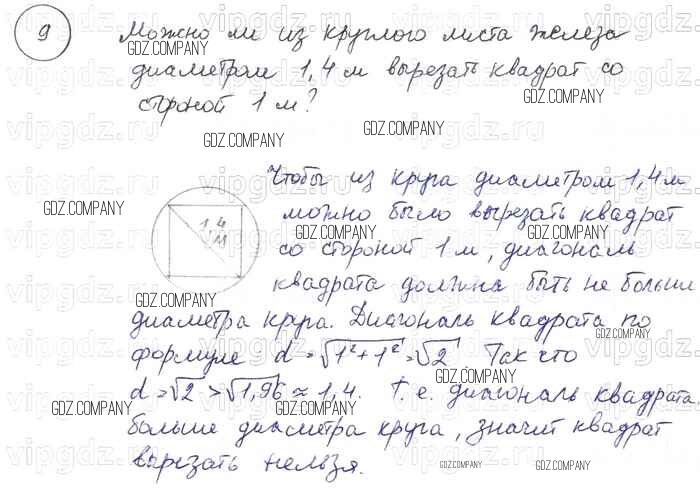 9
Можно ли из круглого листа железа
диаметром 1,4 м вырезать квадрат со
стороной 1 м?
Чтобы из круга диаметром 1,4 м
можно было вырезать квадрат
со стороной 1 м, диагональ
квадрата должна быть не больше
1,4
м
диаметра круга. Диагональ квадрата по
формуле d = √1²+1² = √2 Так что
d = √2 > √1,96 ≈ 1,4. Т.е. диагональ квадрата
больше диаметра круга, значит квадрат
вырезать нельзя.
GDZ.COMPANY
vipgdz.ru